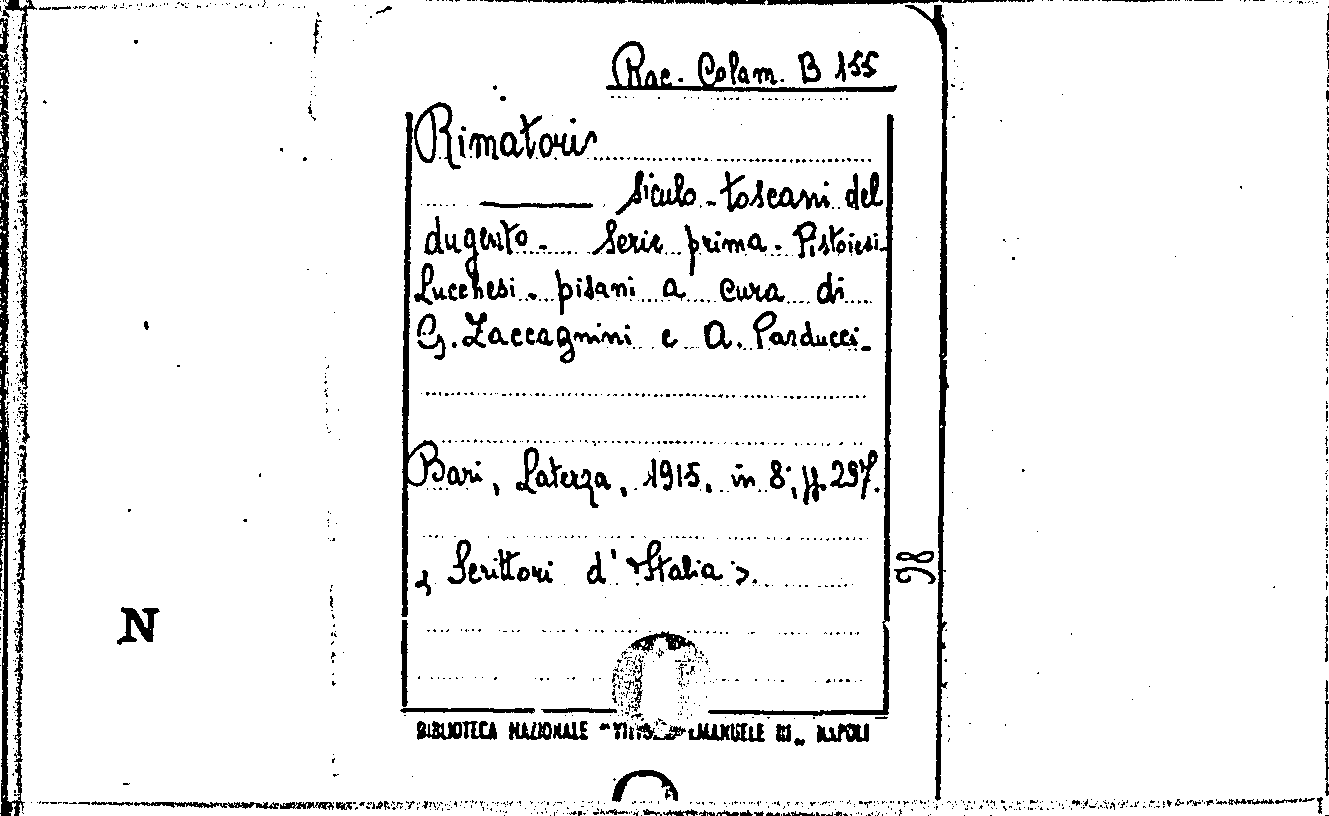 Rac. Colam. B 155
Rimatori
siculo-toscani del
dugento. Serie prima. Pistoiesi-
Lucchesi-pisani a cura di
G. Zaccagnini e A. Parducci.
Bari, Laterza, 1915, in 8°, pp. 297.
< Scrittori d'Italia >.
98
BIBLIOTECA NAZIONALE "VITTORIO EMANUELE III„ NAPOLI
N